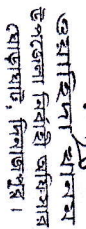 ওয়াহিদা খানম
উপজেলা নির্বাহী অফিসার
ঘোড়াঘাট, দিনাজপুর।